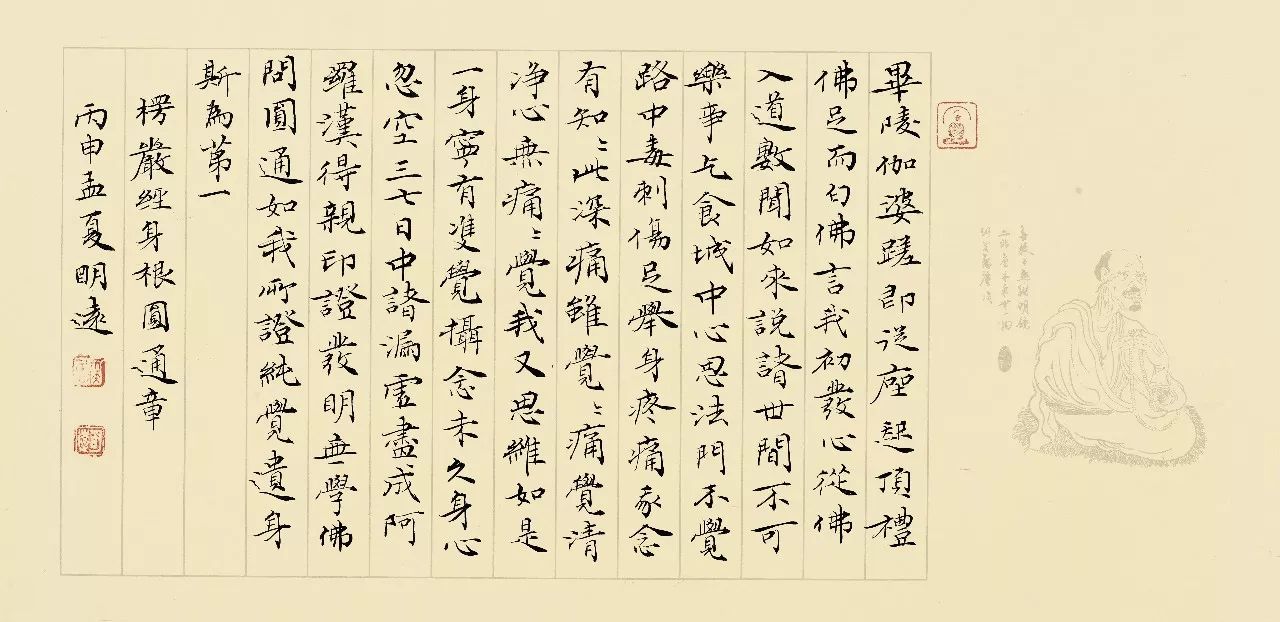 畢陵伽婆蹉即從座起頂禮
佛足而白佛言我初發心從佛
入道數聞如來説諸世間不可
樂事乞食城中心思法門不覺
路中毒刺傷足舉身疼痛我念
有知〻此深痛雖覺〻痛覺清
净心無痛〻覺我又思維如是
一身寧有雙覺攝念未久身心
忽空三七日中諸漏虛盡成阿
羅漢得親印證發明無學佛
問圓通如我所證純覺遺身
斯為第一
楞嚴經身根圓通章
丙申孟夏明遠